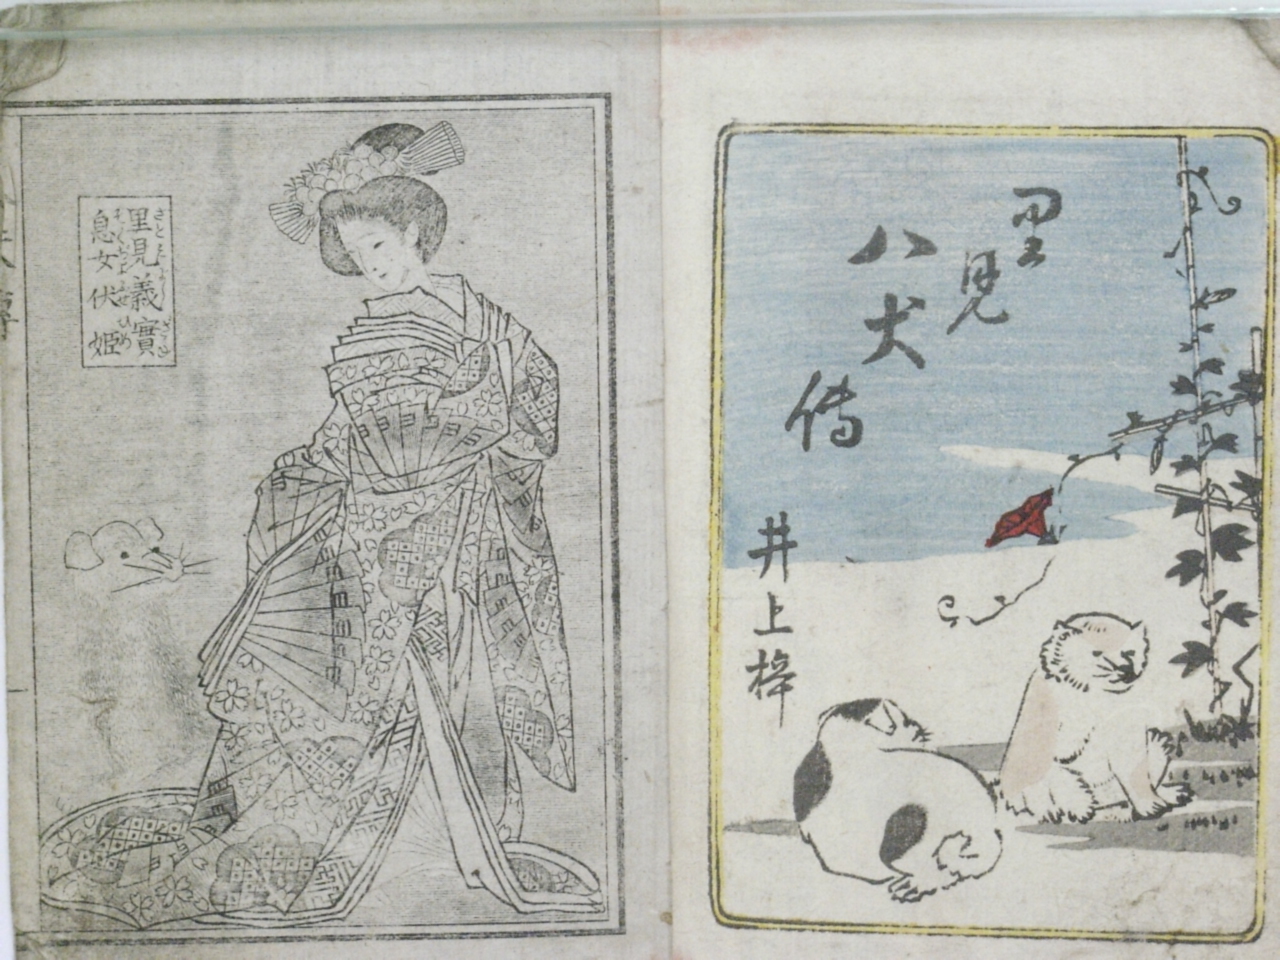 里見
八犬傳
井上梓
里見義實
息女伏姫